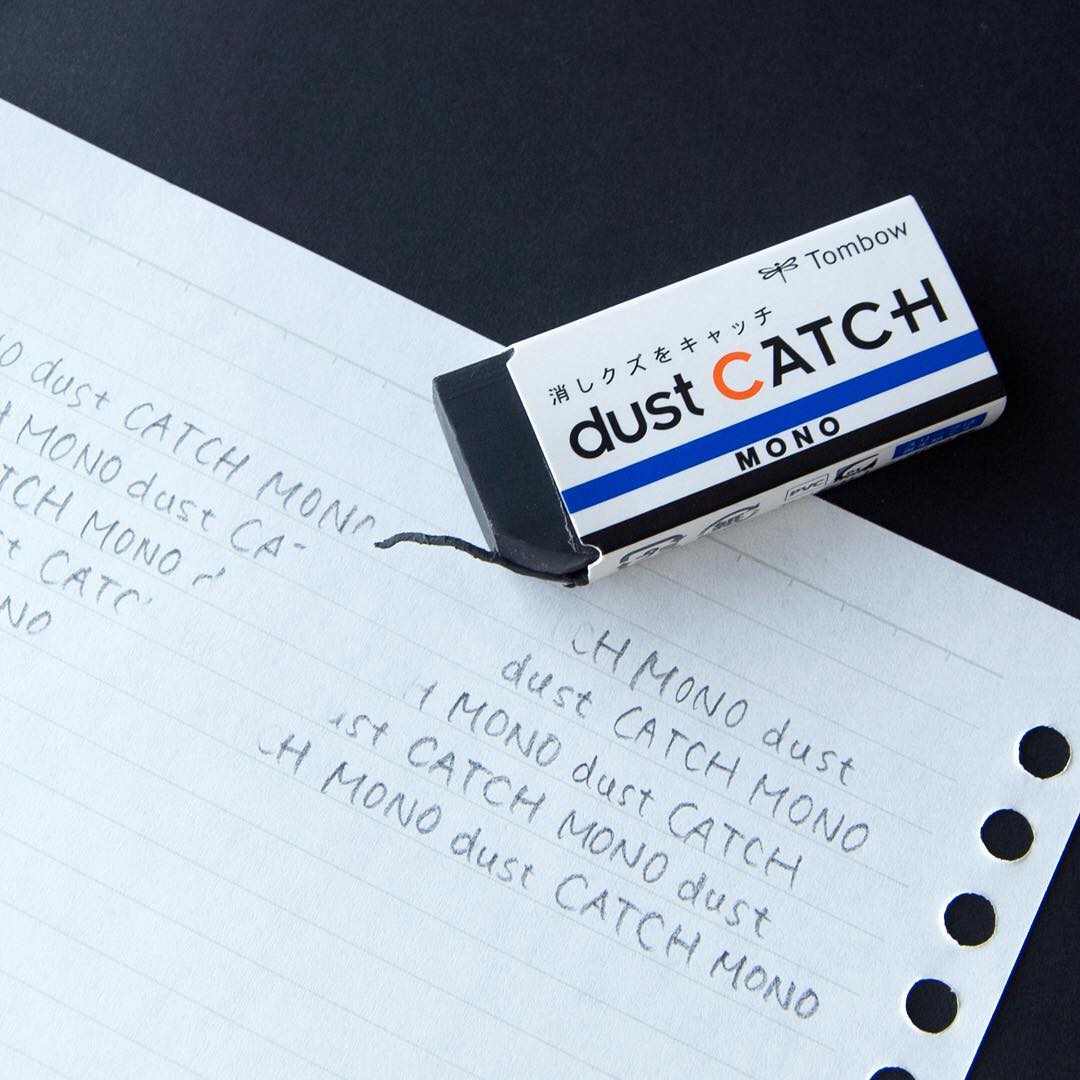 Tombow
消しクズをキャッチ
dust CATCH
MONO
PVC
dust CATCH MONO
MONO dust CA
TCH MONO
st CATC
NO
CH MONO dust
dust CATCH MONO
H MONO dust CATCH
ust CATCH MONO dust
CH MONO dust CATCH MONO